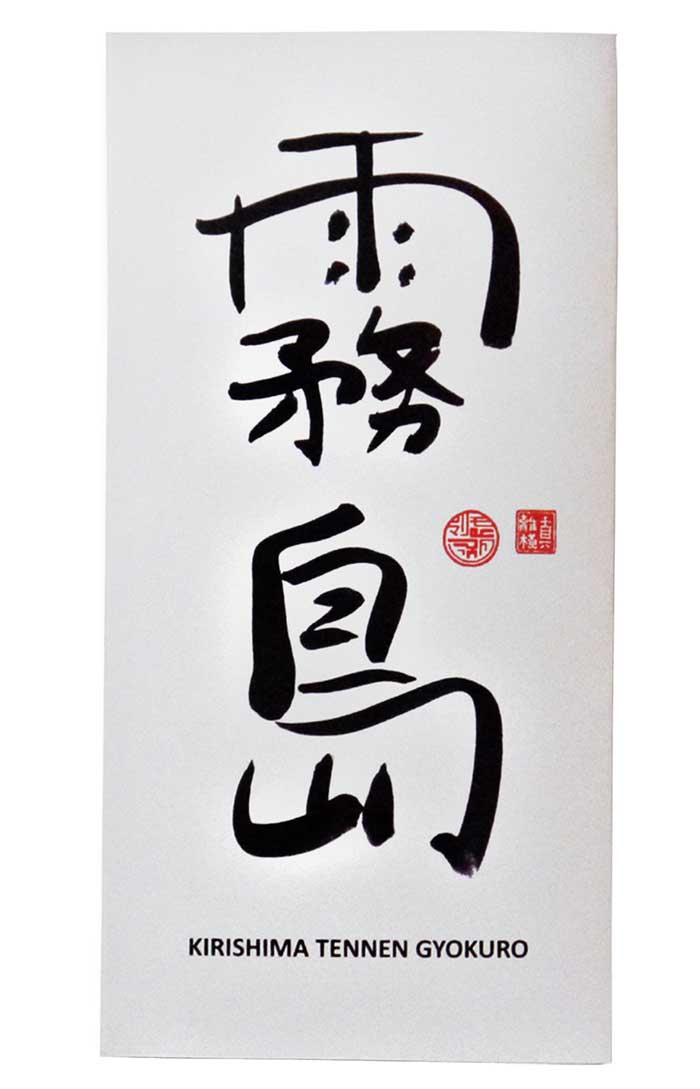 霧島
KIRISHIMA TENNEN GYOKURO